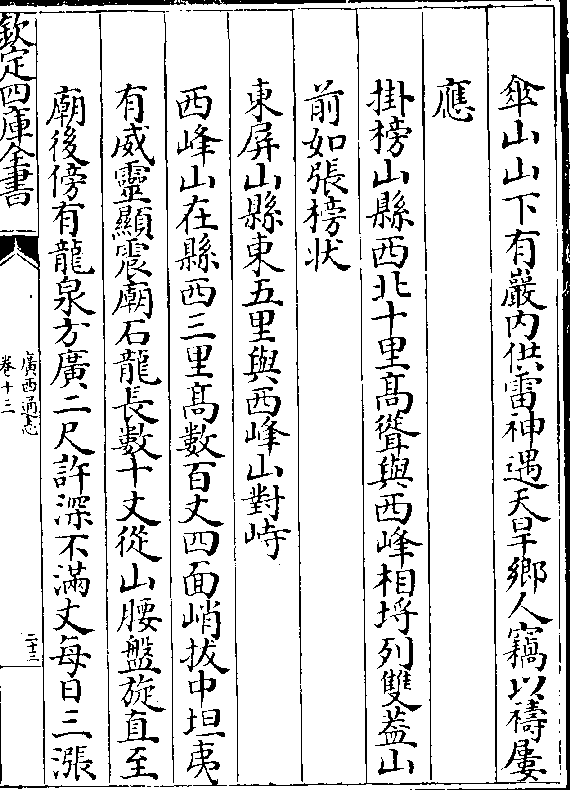 傘山山下有巖内供雷神遇天旱鄉人竊以禱屢
應
掛榜山縣西北十里髙聳與西峰相埒列雙葢山
前如張榜狀
東屏山縣東五里與西峰山對峙
西峰山在縣西三里髙數百丈四面峭拔中坦夷
有威靈顯震廟石龍長數十丈從山腰盤旋直至
廟後傍有龍泉方廣二尺許深不滿丈每日三漲
欽定四庫全書
廣西通志
卷十三
二十三